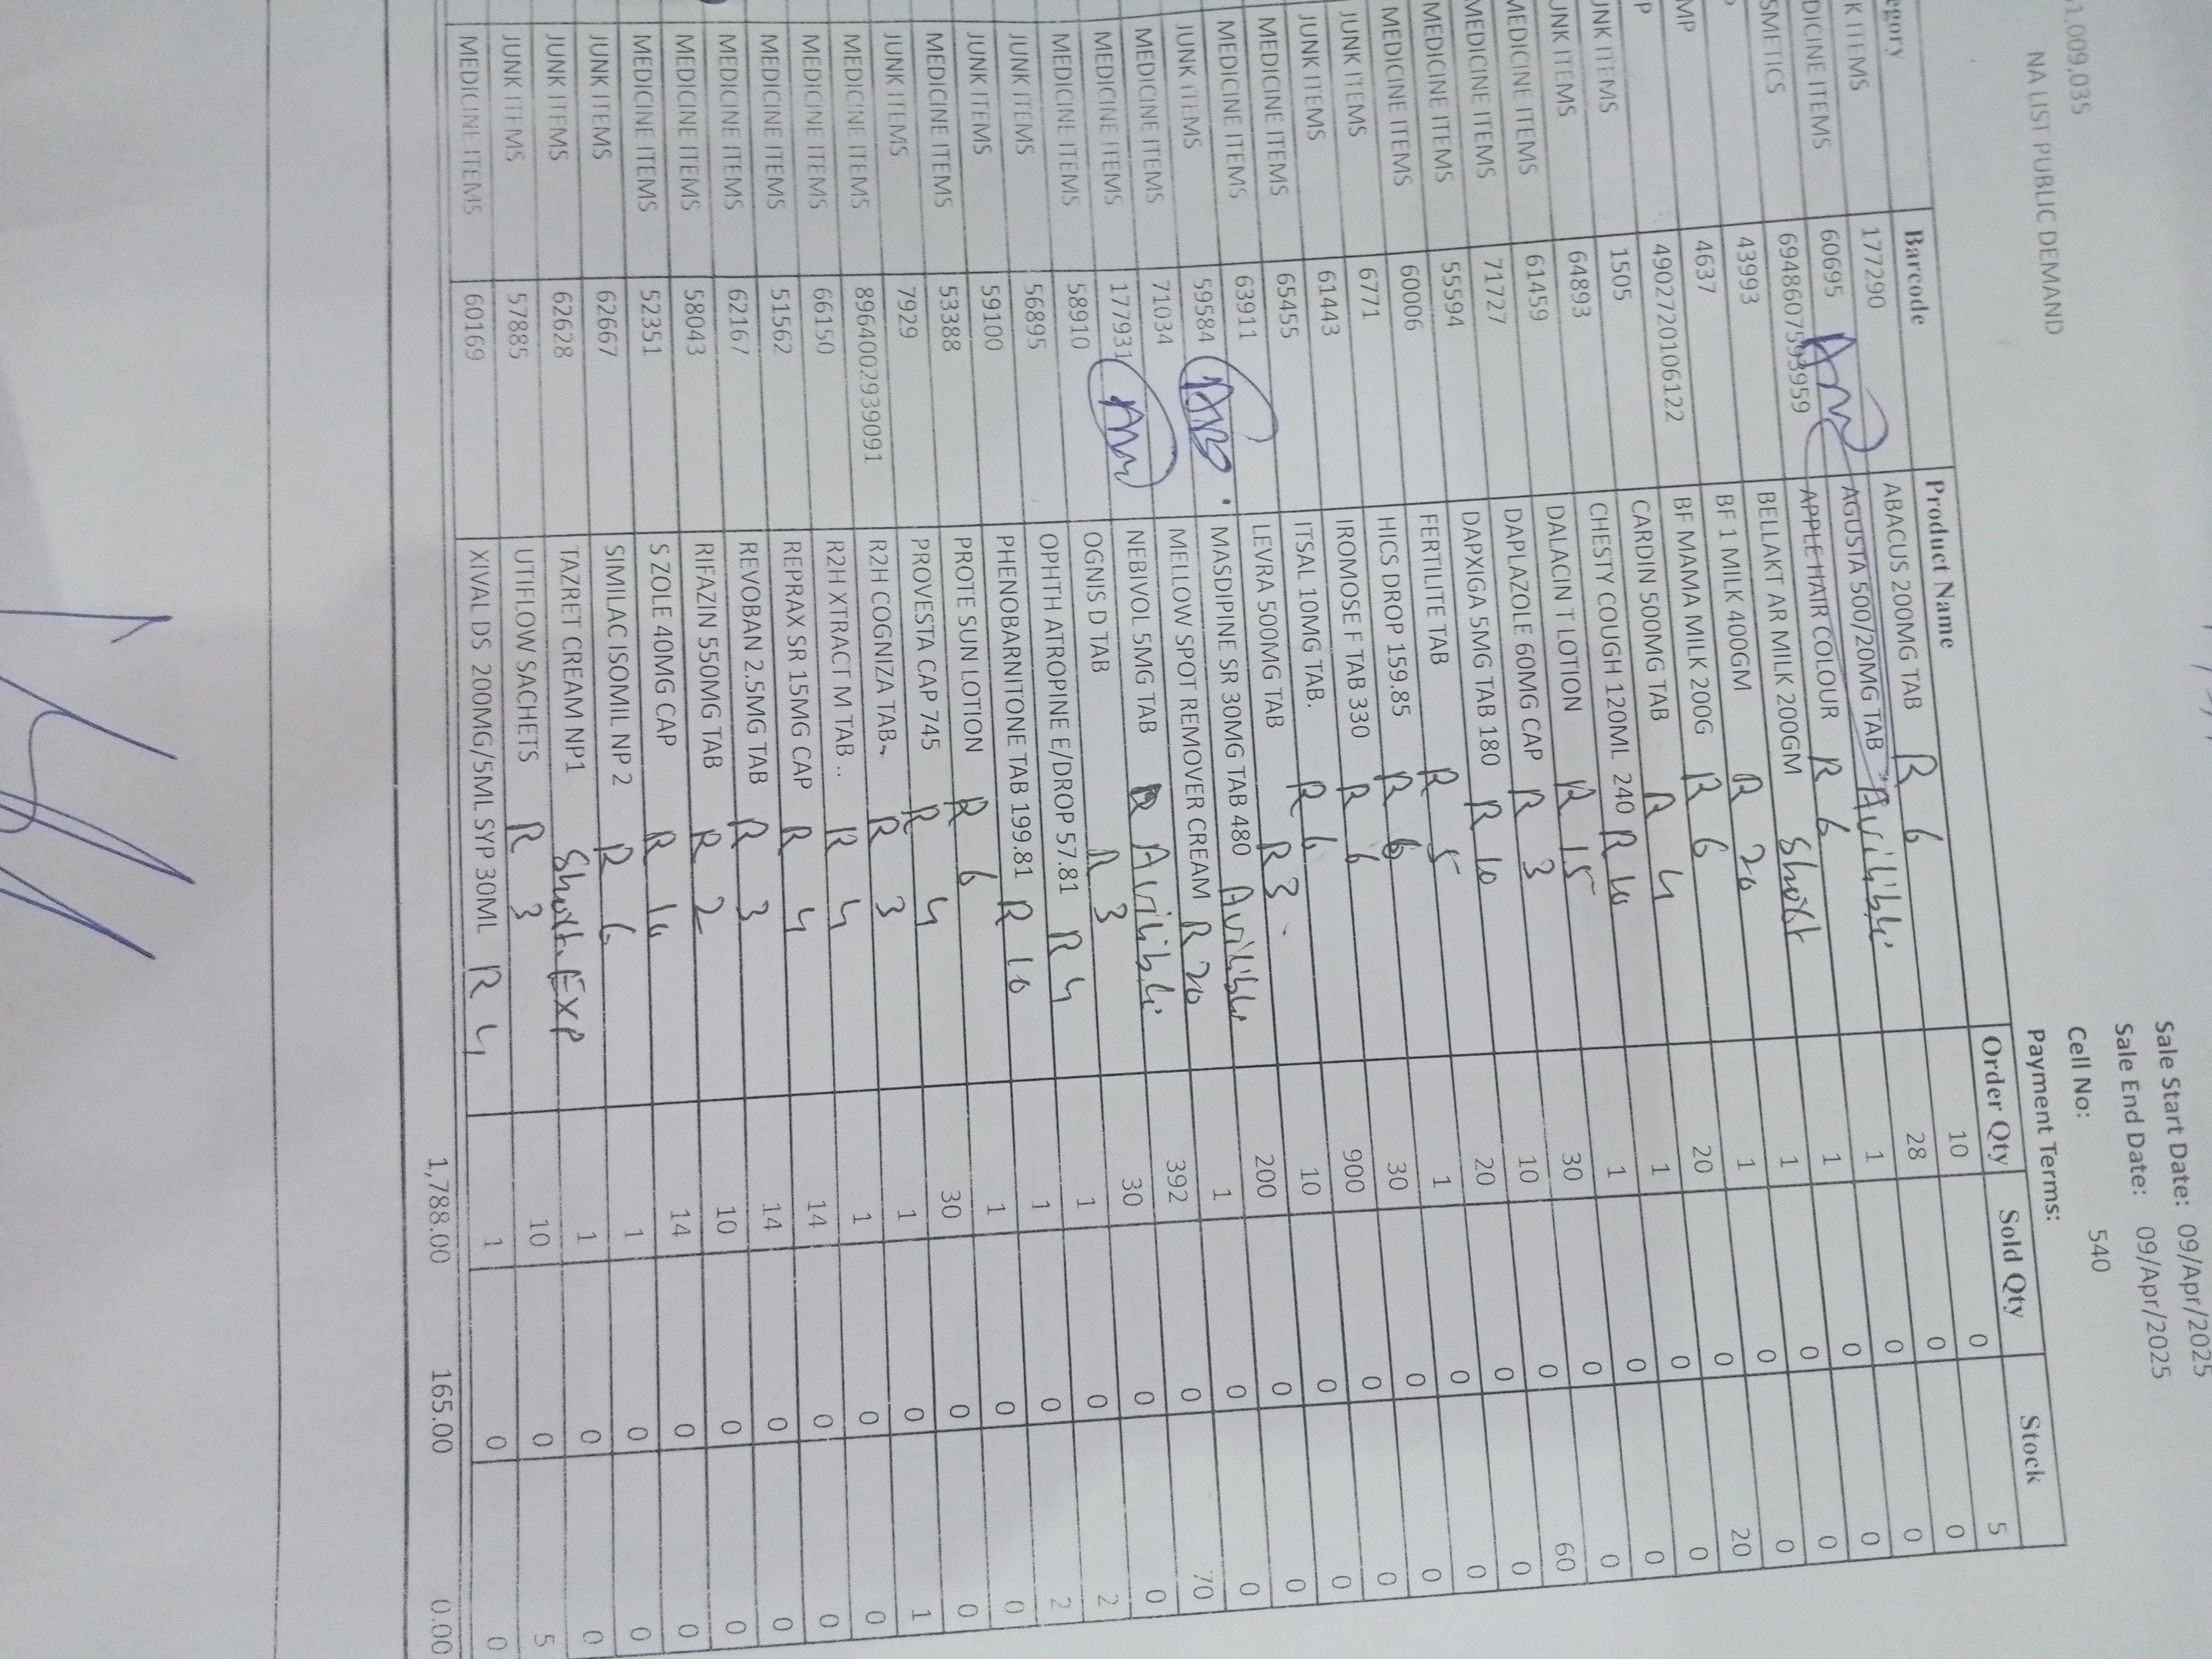 Sale Start Date: 09/Apr/2025
Sale End Date: 09/Apr/2025
1,009,035 Cell No: 540
NA LIST PUBLIC DEMAND Payment Terms:
egory Barcode Product Name Order Qty Sold Qty Stock
K ITEMS 177290 ABACUS 200MG TAB R 6 10 0 5
DICINE ITEMS 60695 AGUSTA 500/20MG TAB Avilible 28 0 0
SMETICS 6948607593959 APPLE HAIR COLOUR R 6 1 0 0
43993 BELLAKT AR MILK 200GM Short 1 0 0
MP 4637 BF 1 MILK 400GM R 20 1 0 0
P 4902720106122 BF MAMA MILK 200G R 6 1 0 0
UNK ITEMS 1505 CARDIN 500MG TAB R 4 20 0 20
UNK ITEMS 64893 CHESTY COUGH 120ML 240 R 10 1 0 0
MEDICINE ITEMS 61459 DALACIN T LOTION R 15 1 0 0
MEDICINE ITEMS 71727 DAPLAZOLE 60MG CAP R 3 30 0 0
MEDICINE ITEMS 55594 DAPXIGA 5MG TAB 180 R 10 10 0 60
MEDICINE ITEMS 60006 FERTILITE TAB R 5 20 0 0
JUNK ITEMS 6771 HICS DROP 159.85 R 6 1 0 0
JUNK ITEMS 61443 IROMOSE F TAB 330 R 6 30 0 0
MEDICINE ITEMS 65455 ITSAL 10MG TAB. R 6 900 0 0
MEDICINE ITEMS 63911 LEVRA 500MG TAB R 3 10 0 0
JUNK ITEMS 59584 MASDIPINE SR 30MG TAB 480 Avilible 200 0 0
MEDICINE ITEMS 71034 MELLOW SPOT REMOVER CREAM R 20 1 0 0
MEDICINE ITEMS 177931 NEBIVOL 5MG TAB Avilible 392 0 70
MEDICINE ITEMS 58910 OGNIS D TAB R 3 30 0 0
JUNK ITEMS 56895 OPHTH ATROPINE E/DROP 57.81 R 4 1 0 2
JUNK ITEMS 59100 PHENOBARNITONE TAB 199.81 R 10 1 0 2
MEDICINE ITEMS 53388 PROTE SUN LOTION R 6 1 0 0
JUNK ITEMS 7929 PROVESTA CAP 745 R 4 30 0 0
MEDICINE ITEMS 8964002939091 R2H COGNIZA TAB. R 3 1 0 1
MEDICINE ITEMS 66150 R2H XTRACT M TAB .. R 4 1 0 0
MEDICINE ITEMS 51562 REPRAX SR 15MG CAP R 4 14 0 0
MEDICINE ITEMS 62167 REVOBAN 2.5MG TAB R 3 14 0 0
MEDICINE ITEMS 58043 RIFAZIN 550MG TAB R 2 10 0 0
MEDICINE ITEMS 52351 S ZOLE 40MG CAP R 10 14 0 0
JUNK ITEMS 62667 SIMILAC ISOMIL NP 2 R 6 1 0 0
JUNK ITEMS 62628 TAZRET CREAM NP1 Short. EXP 1 0 0
JUNK ITEMS 57885 UTIFLOW SACHETS R 3 10 0 5
MEDICINE ITEMS 60169 XIVAL DS 200MG/5ML SYP 30ML R 4 1 0 0
1,788.00 165.00 0.00